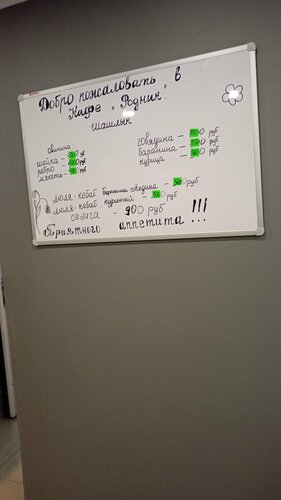 Добро пожаловать в
Кафе "Родник".
шашлык
свинина
шейка - руб
ребро - руб
мякоть - руб
говядина - руб
баранина - руб
курица - руб
люля-кебаб баранина говядина - руб
люля-кебаб куриный - руб
семга - 900 руб
Приятного аппетита !!!